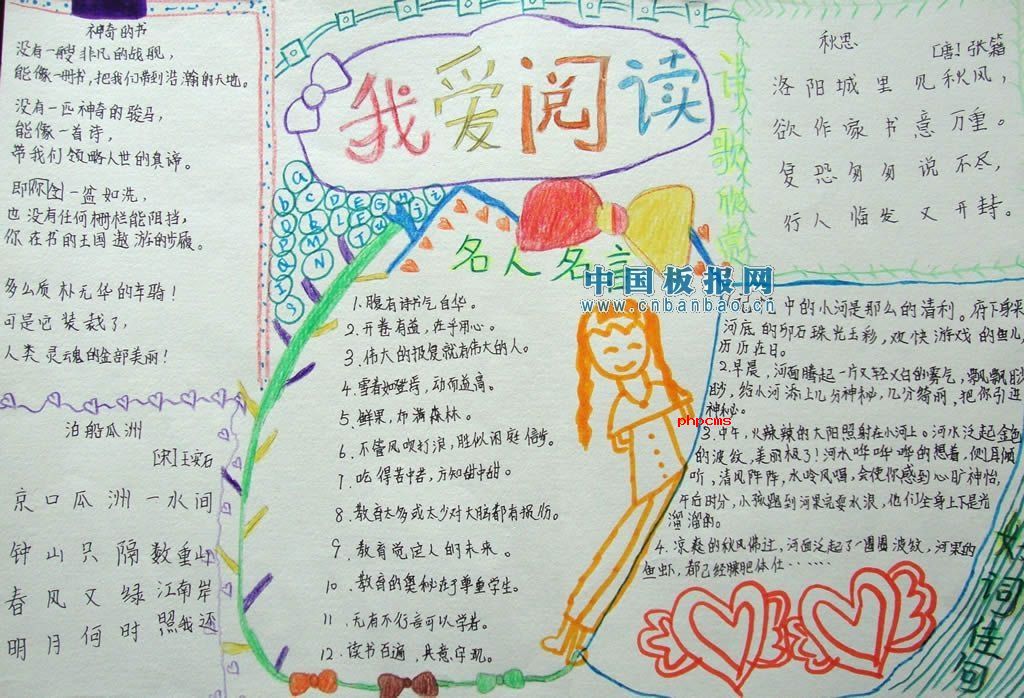 神奇的书
没有一艘非凡的战舰,
能像一册书,把我们带到浩瀚的天地。
没有一匹神奇的骏马,
能像一首诗,
带我们领略人世的真谛。
即你 一盆如洗,
也没有任何栅栏能阻挡,
你在书的王国遨游的步履。
多么质朴无华的车骑!
可是它装载了,
人类灵魂的全部美丽!
泊船瓜洲
[宋]王安石
京口瓜洲一水间
钟山只隔数重山
春风又绿江南岸
明月何时照我还
我爱阅读
名人名言
1.腹有诗书气自华。
2.开卷有益,在乎用心。
3.伟大的报复就有伟大的人。
4.雪者如登侍,动而益高。
5.鲜果,布满森林。
6.不管风吹打浪,胜似闲庭信步。
7.吃得苦中者,方知甜中甜
8.教育太多或太少对大脑都有损伤。
9.教育觉定人的未来。
10.教育的奥秘在于尊重学生。
11.无有不行言可以学者。
12.读书百遍,其意字现。
中国板报网
www.cnbanbao.cn
phpcms
诗歌欣赏
秋思
[唐!张籍
洛阳城里见秋风,
欲作家书意万重。
复恐匆匆说不尽,
行人临发又开封。
中的小河是那么的清利。府下身来
河底的卵石珠光玉彩,欢快游戏的鱼儿
历历在目。
2.早晨,河面腾起一片又轻又白的雾气,飘飘眇
眇,给小河添上几分神秘,几分绮丽,把你引进
神秘。
3.中午,火辣辣的大阳照射在小河上。河水泛起金色
的波纹,美丽极了!河水哗哗哗的想着,侧耳倾
听,清风阵阵,水呤风唱,会使你感到心旷神怡,
午白时分,小孩跑到河里完耍水浪,他们全身上下是光
溜溜的。
4.凉爽的秋风佛过,河面泛起了一圈圈波纹,河里的
鱼虾,都己经膘肥体仕……
好词佳句